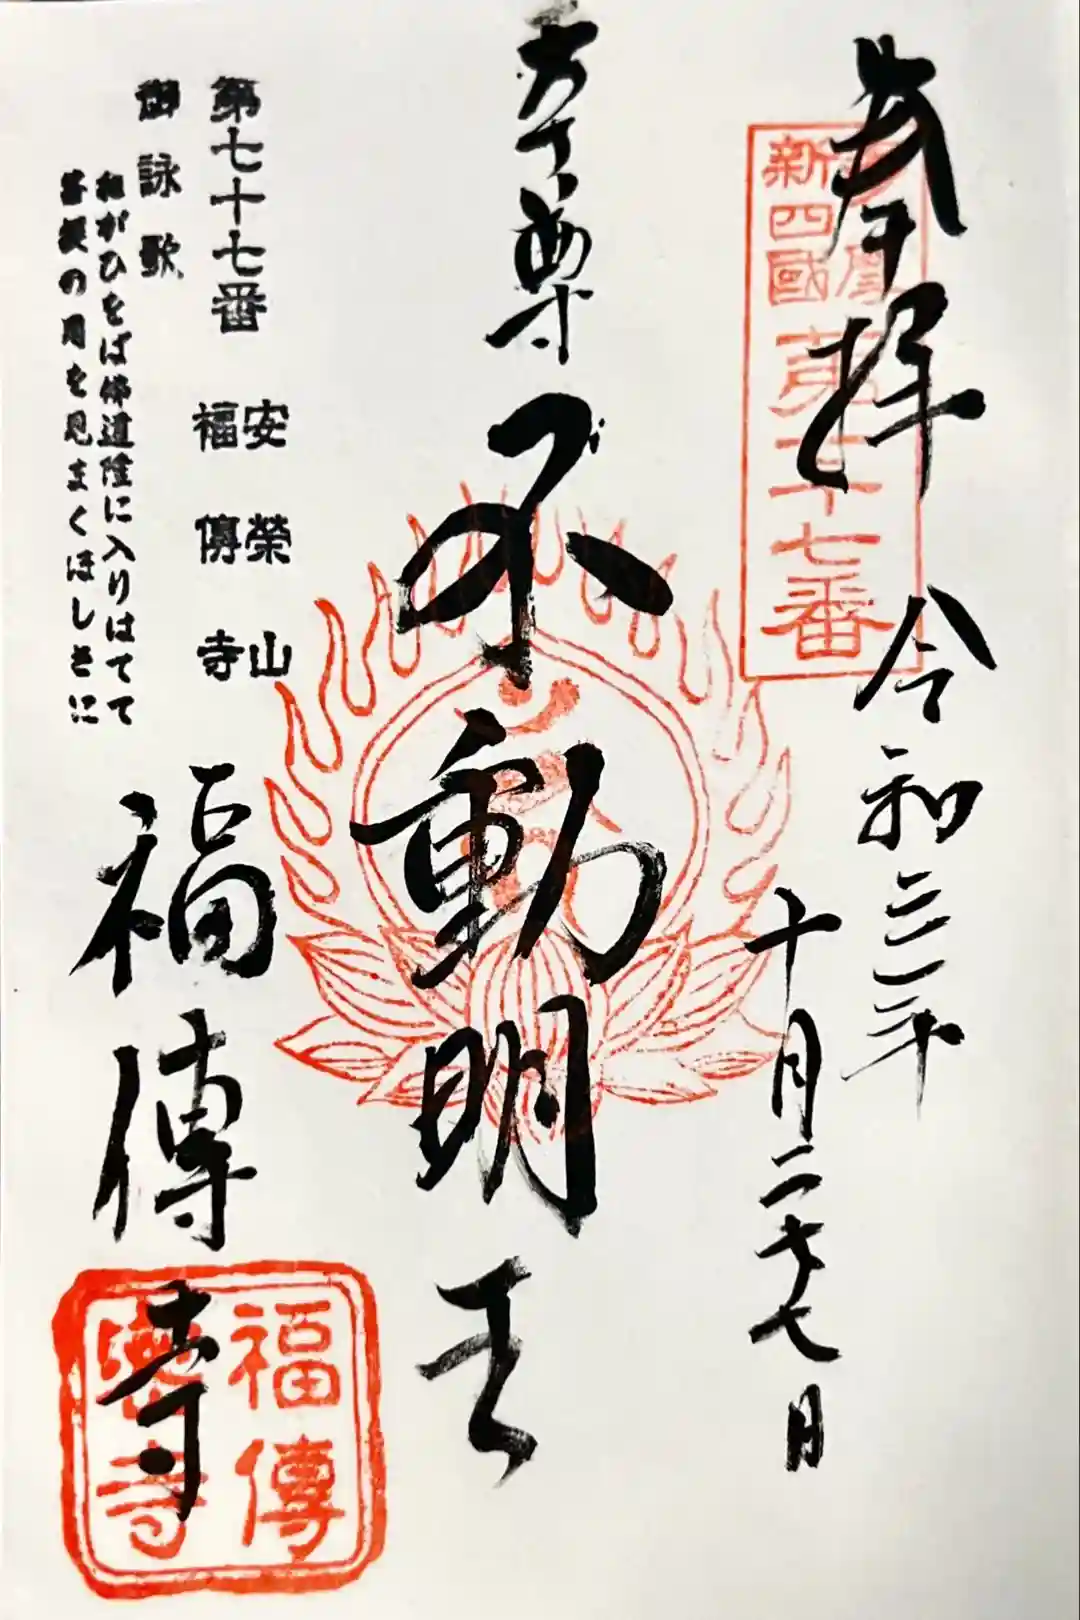 奉拝
令和三年
十月二十七日
新四國
十七番
本尊
不動明王
第七十七番
安榮山
福傳寺
御詠歌
ねがひをば佛道隆に入りはてて
菩提の月を見まくほしさに
福傳寺
福傳
寺